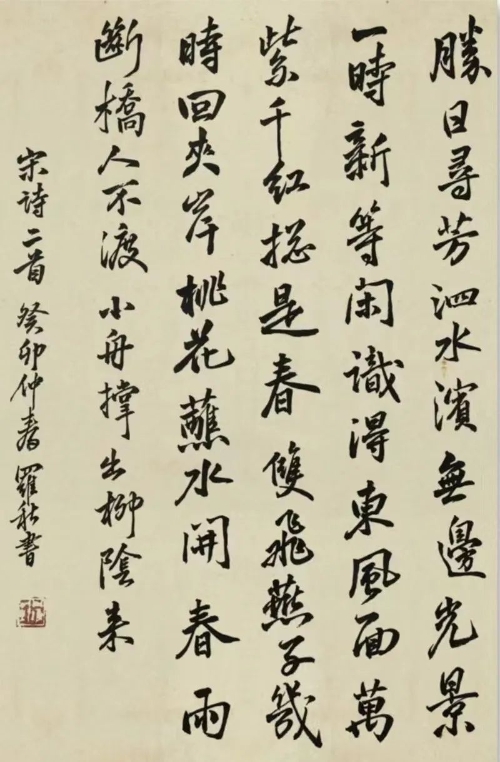 勝日尋芳泗水濱無邊光景
一時新等闲識得東風面萬
紫千红揔是春雙飛燕子幾
時回夾岸桃花蘸水開春雨
斷橋人不渡小舟撑出柳陰来
宋詩二首癸卯仲春羅秋書